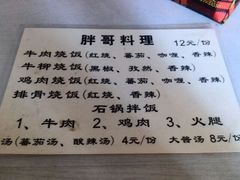 胖哥料理 12元/份
牛肉烧饭(红烧、番茄、咖喱、香辣)
牛柳烧饭(黑椒、孜然、香辣)
鸡肉烧饭(红烧、番茄、咖喱、香辣)
排骨烧饭(红烧、香辣)
石锅拌饭
1、牛肉 2、鸡肉 3、火腿
汤(番茄汤、酸辣汤) 4元/份 大酱汤 8元/份